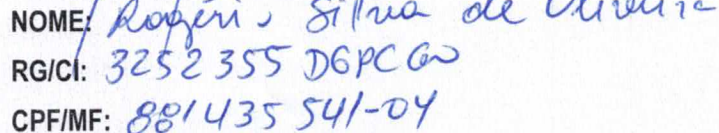 NOME: Rogério Silva de Oliveira
RG/CI: 3252355 DGPC GO
CPF/MF: 881435541-04